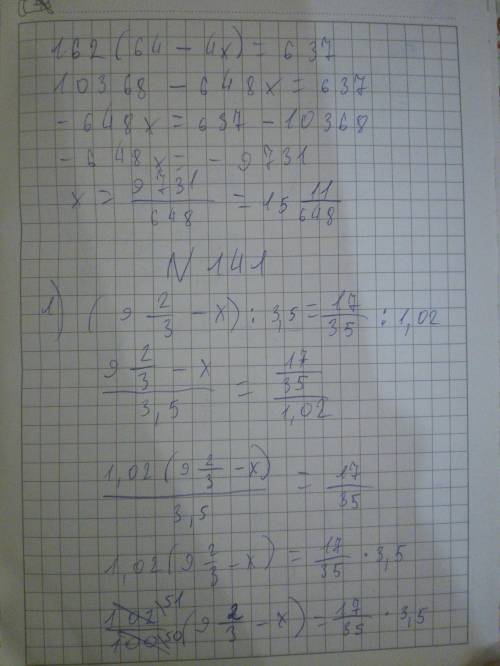 162(64 - 4x) = 637
10368 - 648x = 637
- 648x = 637 - 10368
- 648x = - 9731
x = 9731/648 = 15 11/648
N 141
1) (9 2/3 - x) : 3,5 = 17/35 : 1,02
(9 2/3 - x)/3,5 = (17/35)/1,02
1,02(9 2/3 - x)/3,5 = 17/35
1,02(9 2/3 - x) = 17/35 · 3,5
102 51/100 50 (9 2/3 - x) = 17/35 · 3,5